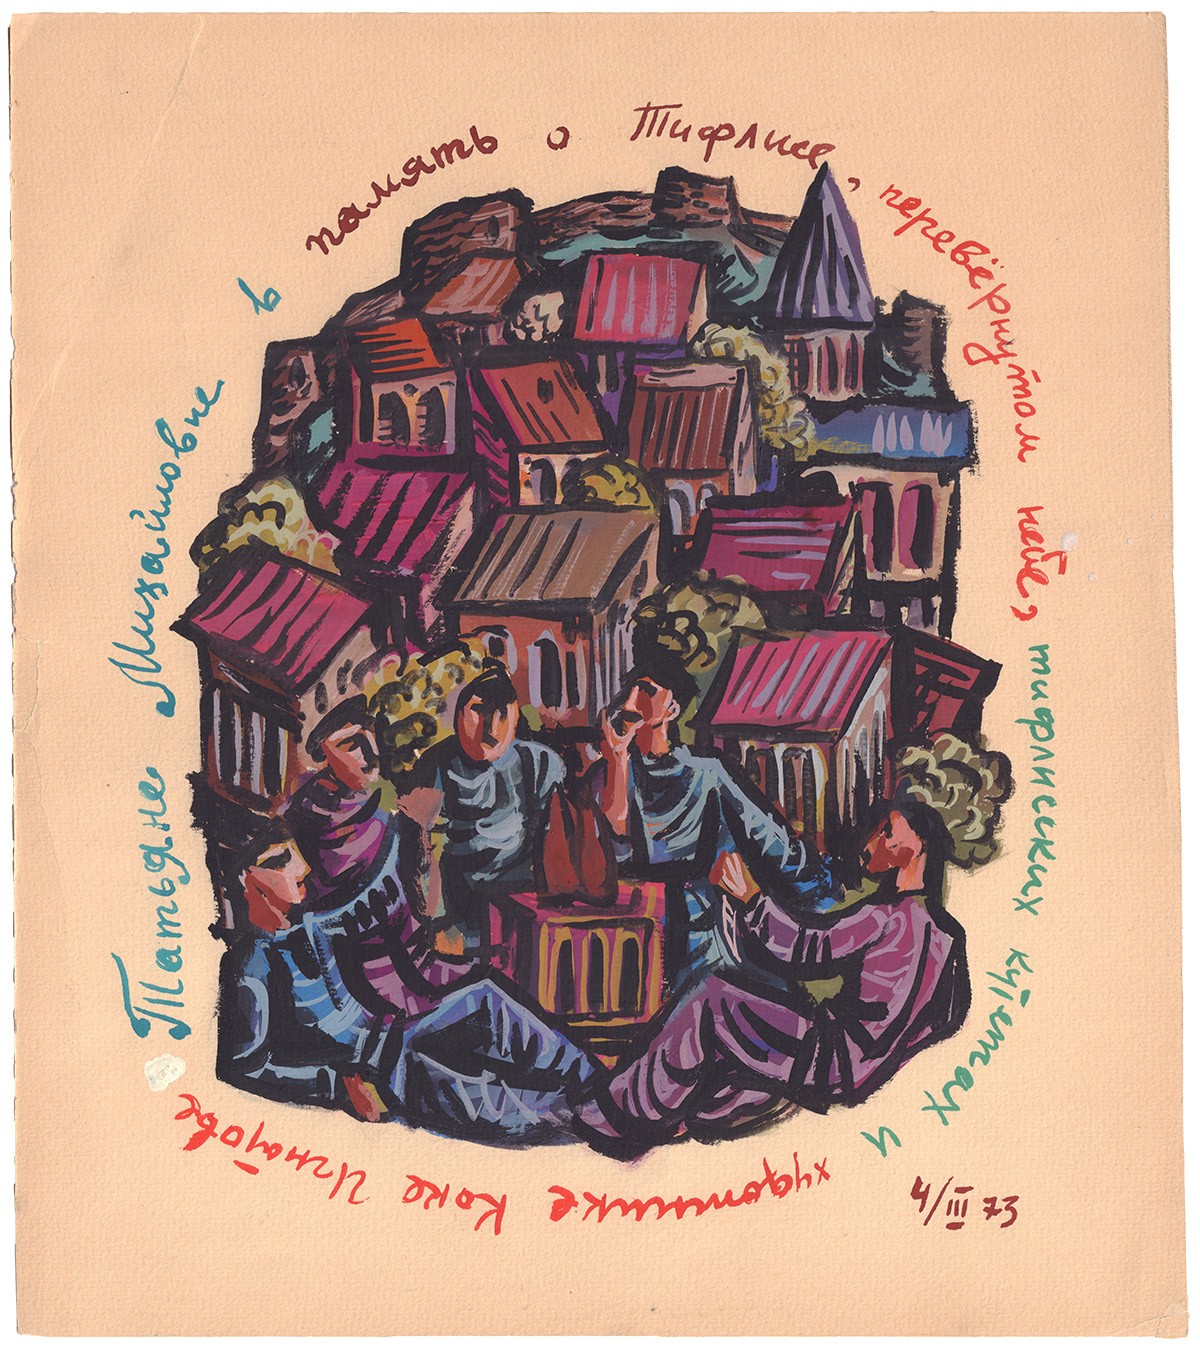 Татьяне Михайловне в память о Тифлисе, перевёрнутом небе, тифлисских кутежах и художнике Коке Игнатове
4/III 73